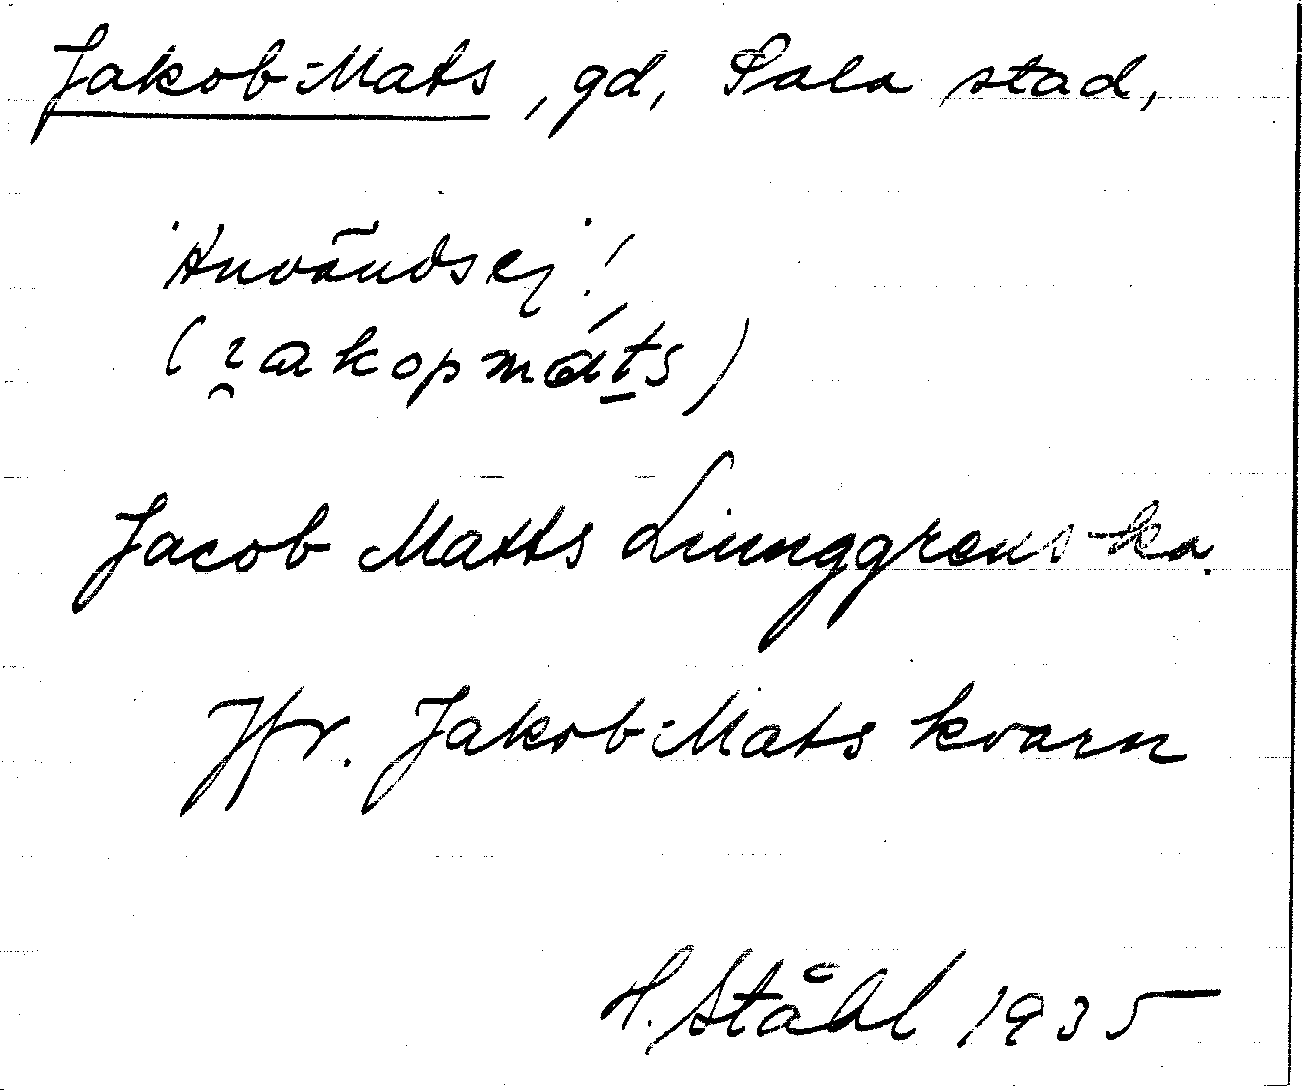 Jakob-Mats, gd, Sala stad,
Användsej!
(ɪ̯akopmáts)
Jacob Matts Liunggrens ka.
Jfr. Jakob-Mats kvarn
H. Ståhl 1935